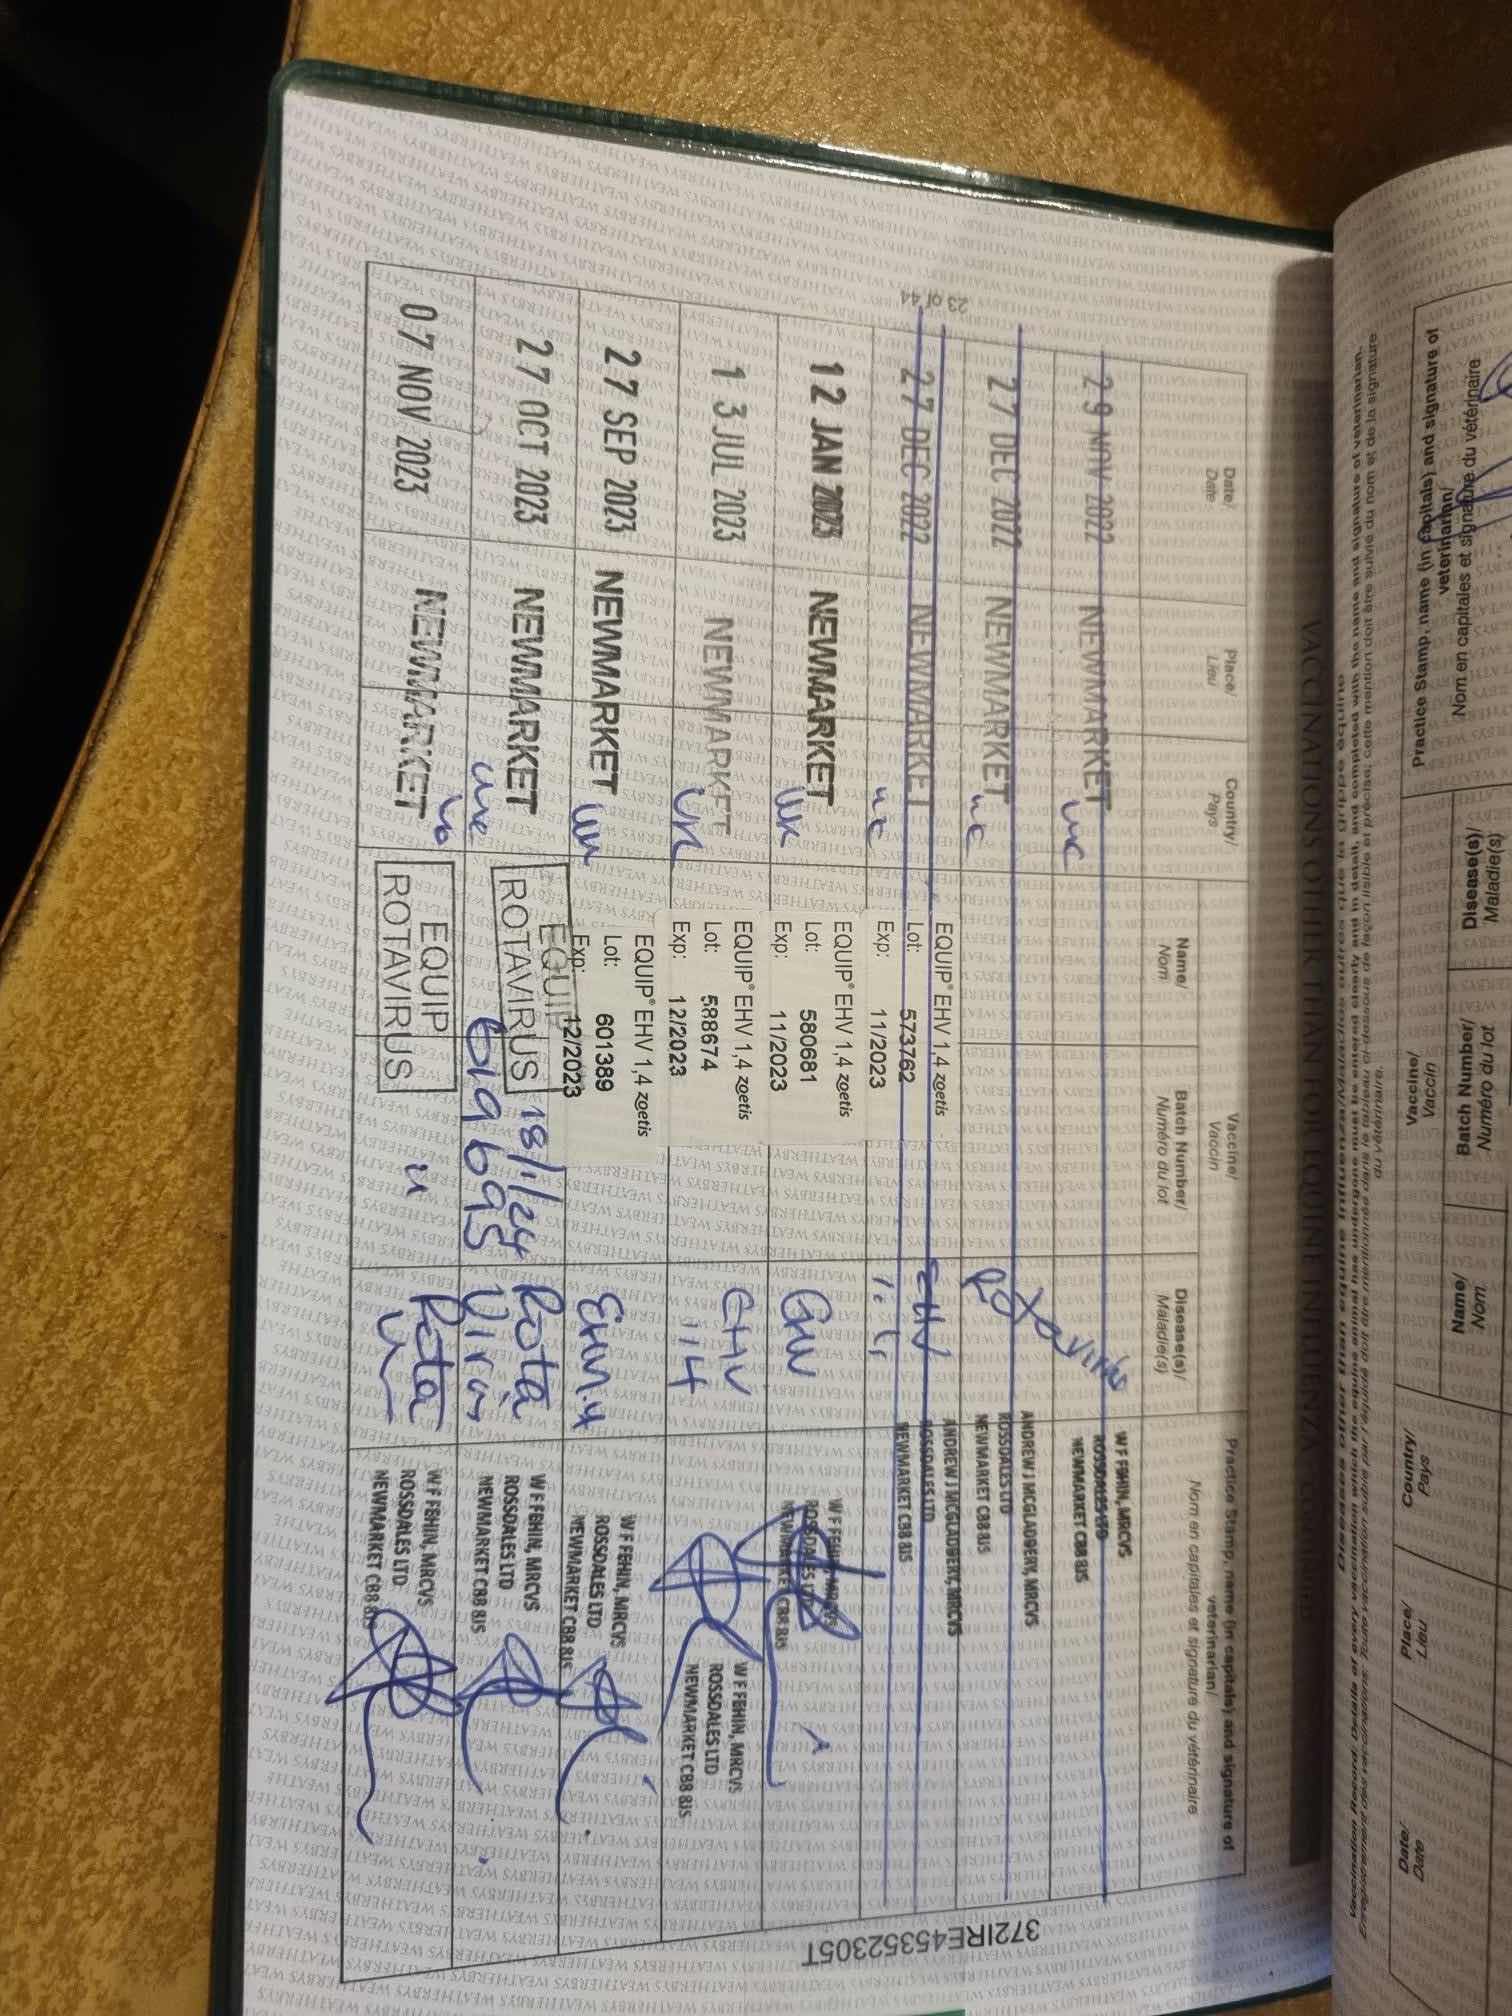 VACCINATIONS OTHER THAN FOR EQUINE INFLUENZA
Date/
Date
Place/
Lieu
Country/
Pays
Vaccine/
Vaccin
Name/
Nom
Batch Number/
Numéro du lot
Disease(s)/
Maladie(s)
Practice Stamp, name (in capitals) and signature of
veterinarian/
Nom en capitales et signature du vétérinaire
29 NOV 2022 NEWMARKET
W F FEHIN, MRCVS
ROSSDALES LTD
NEWMARKET CB8 8JS
27 DEC 2022 NEWMARKET
Rotavirus
ANDREW J MCGLADDERY, MRCVS
ROSSDALES LTD
NEWMARKET CB8 8JS
27 DEC 2022 NEWMARKET
EQUIP® EHV 1,4 zoetis
Lot: 573762
Exp: 11/2023
EHV
ANDREW J MCGLADDERY, MRCVS
ROSSDALES LTD
NEWMARKET CB8 8JS
12 JAN 2023 NEWMARKET UK
EQUIP® EHV 1,4 zoetis
Lot: 580681
Exp: 11/2023
W F FEHIN, MRCVS
ROSSDALES LTD
NEWMARKET CB8 8JS
13 JUL 2023 NEWMARKET UK
EQUIP® EHV 1,4 zoetis
Lot: 588674
Exp: 12/2023
EHV
1,4
W F FEHIN, MRCVS
ROSSDALES LTD
NEWMARKET CB8 8JS
27 SEP 2023 NEWMARKET UK
EQUIP® EHV 1,4 zoetis
Lot: 601389
Exp: 12/2023
EHV1.4
W F FEHIN, MRCVS
ROSSDALES LTD
NEWMARKET CB8 8JS
27 OCT 2023 NEWMARKET
EQUIP
ROTAVIRUS
18/1/24
619695
Rota
Virus
W F FEHIN, MRCVS
ROSSDALES LTD
NEWMARKET CB8 8JS
07 NOV 2023 NEWMARKET
EQUIP
ROTAVIRUS
Rota
W F FEHIN, MRCVS
ROSSDALES LTD
NEWMARKET CB8 8JS
23 of 44
372IRE45352305T
Diseases other than equine influenza/Maladies autres que la grippe équine
Vaccination Record: Details of every vaccination which the equine animal has undergone must be entered clearly and in detail, and completed with the name and signature of veterinarian.
du vétérinaire.
Practice Stamp, name (in capitals) and signature of
veterinarian/
Nom en capitales et signature du vétérinaire
Disease(s)/
Maladie(s)
Vaccine/
Vaccin
Batch Number/
Numéro du lot
Name/
Nom
Country/
Pays
Place/
Lieu
Date/
Date